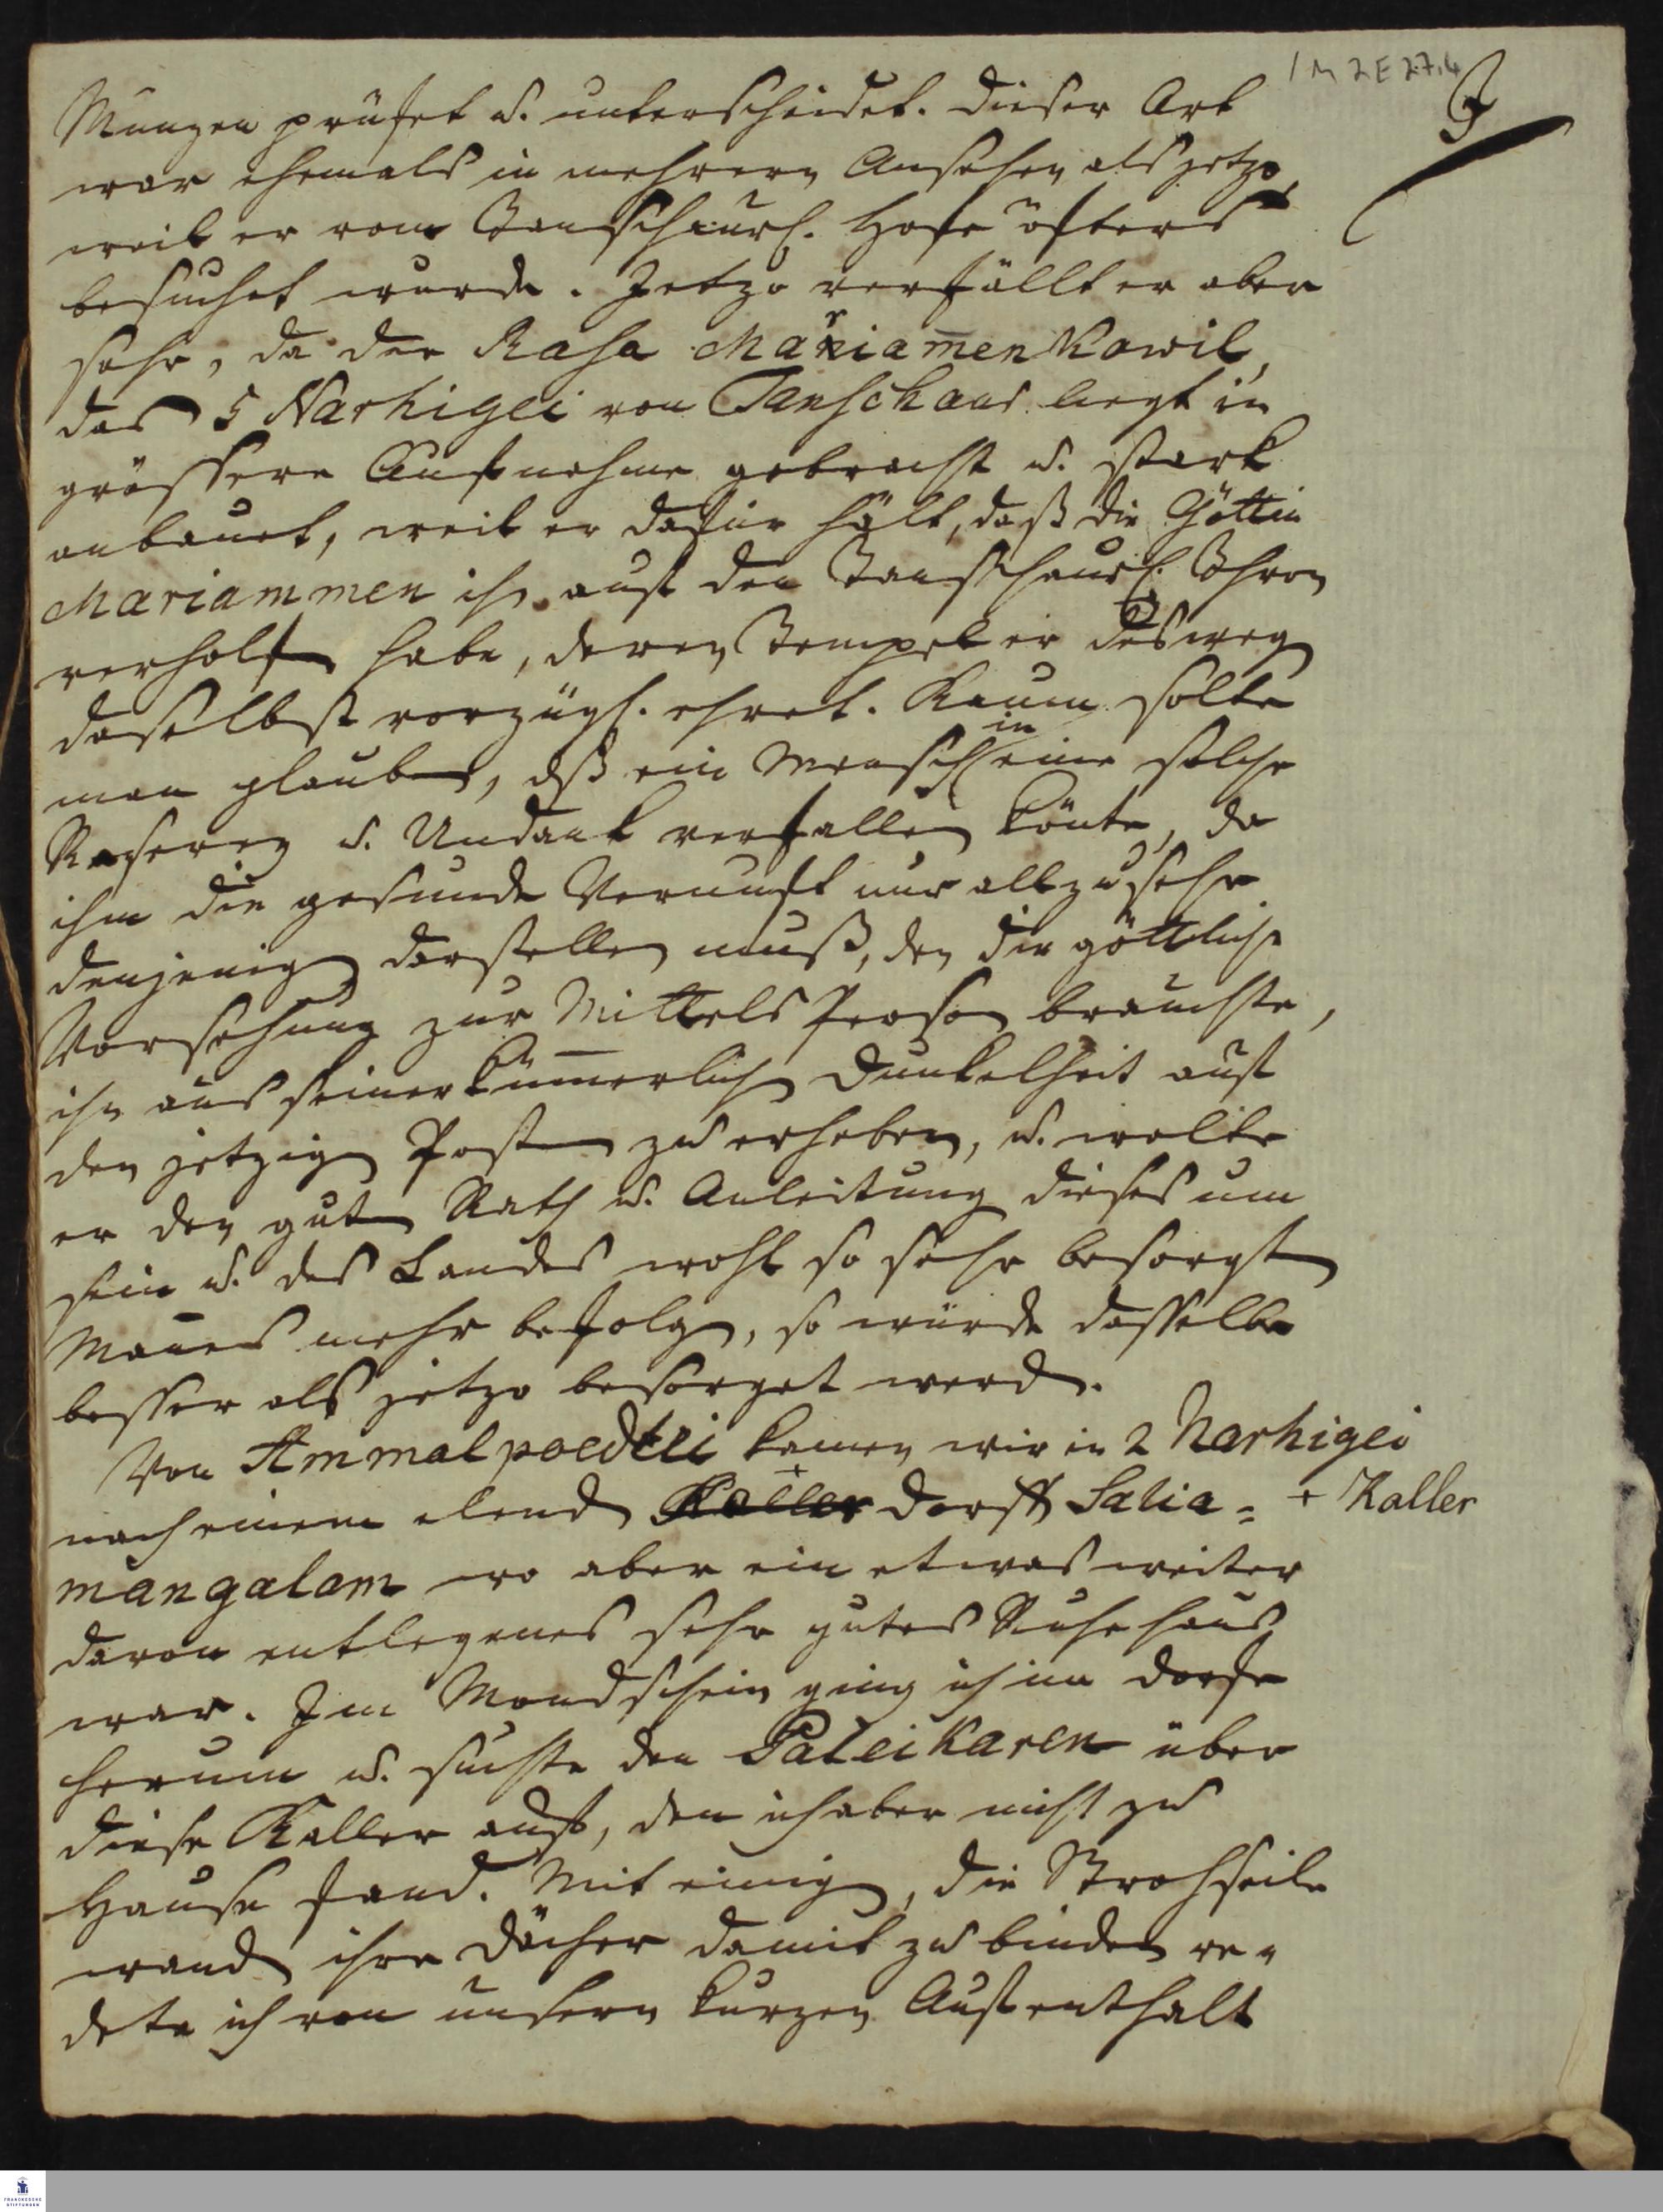 1 M 2 E 27.4
9
Munzen prüfet u. unterscheidet. Dieser Ort
war ehemals in mehrern Ansehen als jetzo,
weil er vom Tanschaurs. Hofe öfters
besuchet wurde. Jetzo verfällt er aber
sehr, da der Rasa Mariam̅enkowil,
das 5 Narhigei von Tanschaur liegt in
grössere Aufnahme gebracht u. stark
anbauet, weil er dafür hält, daß die Göttin
Mariammen ihr auf den Tanschaurs. Thron
verholfen habe, deren Tempel er deswegen
daselbst vorzügl. ehret. Kaum solte
man glauben, dß ein Mensch in eine solche
Raserey u. Undank verfallen könte, da
ihm die gesunde Vernunft nur allzusehr
denjenigen darstellen muß, den die göttliche
Vorsehung zur Mittels Person brauchte,
ihn aus seiner küm̅erlichen Dunkelheit auf
den jetzigen Posten zu erheben, u. wolte
er den guten Rath u. Anleitung dieses um
sein u. des Landes wohl so sehr besorgten
Man̅es mehr befolgen, so würde dasselbe
besser als jetzo besorget werden.
Von Ammalpoedtei kamen wir in 2 Narhigei
nach einem elenden Kaller Dorff Salia= + Kaller
mangalam wo aber ein etwas weiter
davon entlegenes sehr gutes Ruhehaus
war. Im Mondschein ging ich im Dorfe
herum u. suchte den Paleikaren über
diese Kaller auf, den ich aber nicht zu
Hause fand. Mit einigen, die Strohseile
wanden ihre Dächer damit zu binden re=
dete ich von unsern kurzen Aufenthalt
FRANCKESCHE
STIFTUNGEN